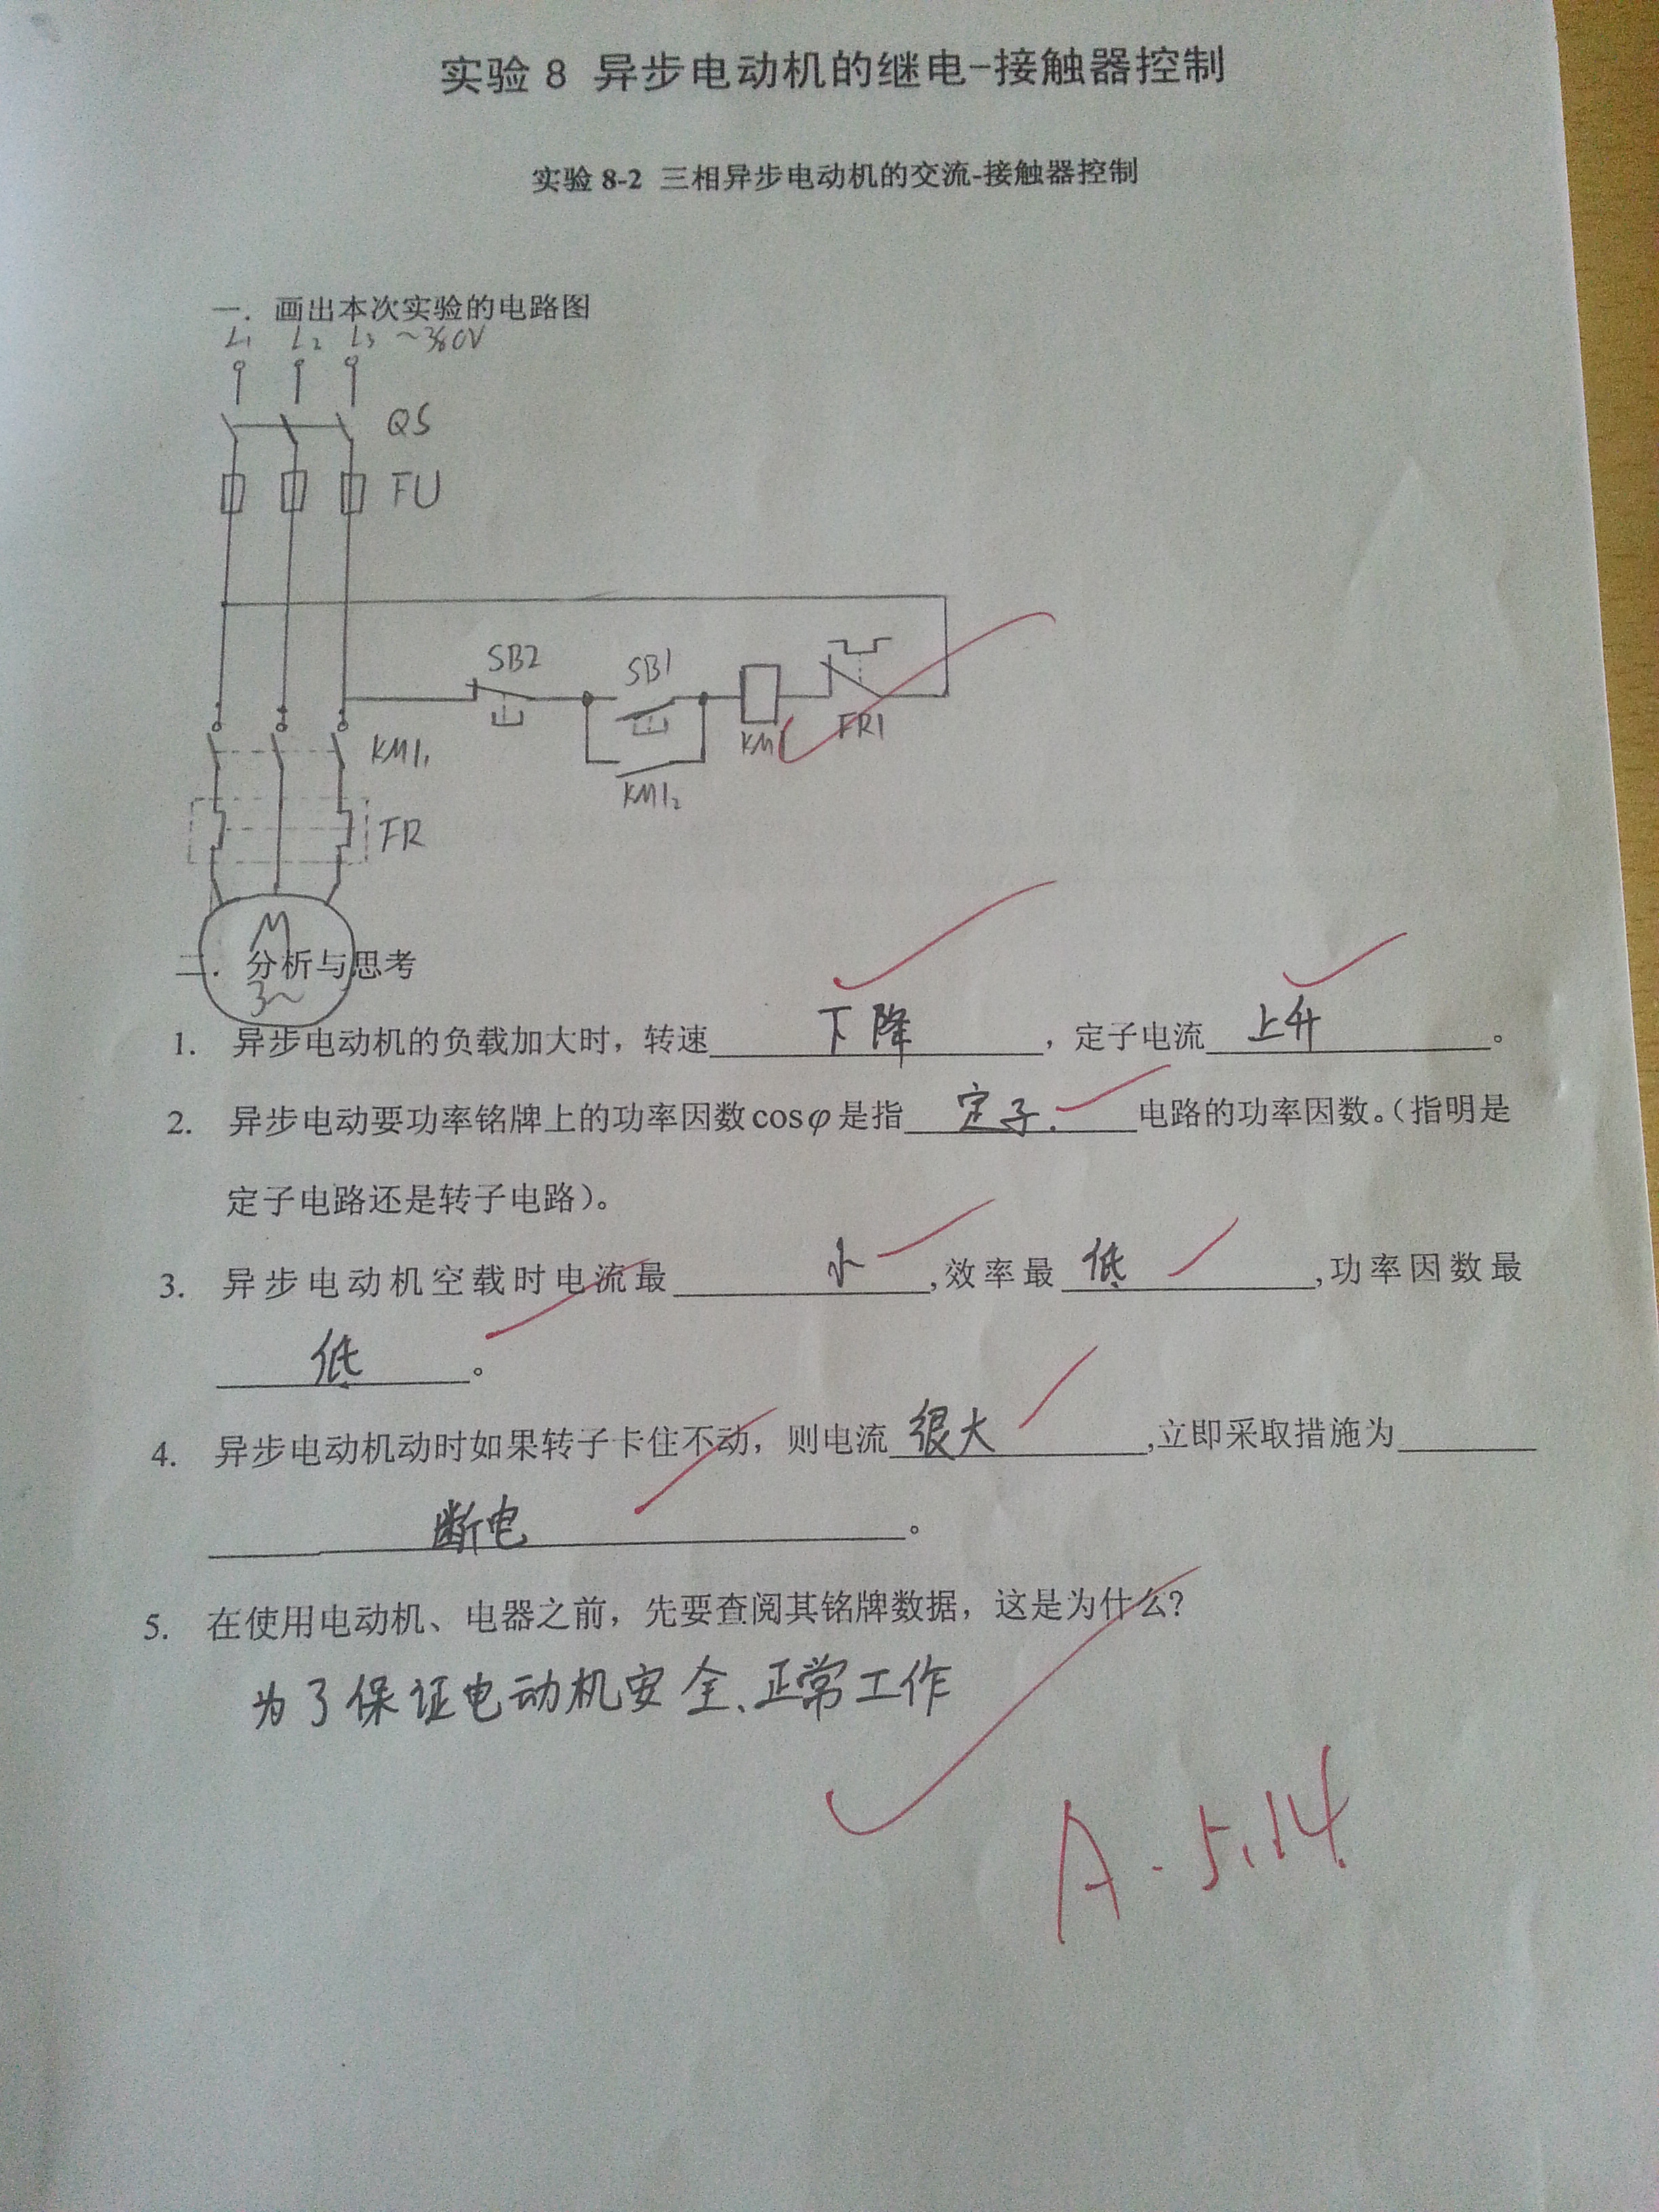 实验 8 异步电动机的继电-接触器控制
实验 8-2 三相异步电动机的交流-接触器控制
一. 画出本次实验的电路图
L1 L2 L3 ~380V
QS
FU
SB2 SB1
KM1 FR1
KM1₁
KM1₂
FR
M
3~
二. 分析与思考
1. 异步电动机的负载加大时，转速 下降 ，定子电流 上升 。
2. 异步电动要功率铭牌上的功率因数cosφ是指 定子. 电路的功率因数。（指明是
定子电路还是转子电路）。
3. 异步电动机空载时电流最 小 ,效率最 低 ,功率因数最
低 。
4. 异步电动机动时如果转子卡住不动，则电流 很大 ,立即采取措施为
断电 。
5. 在使用电动机、电器之前，先要查阅其铭牌数据，这是为什么?
为了保证电动机安全、正常工作
A - 5.14